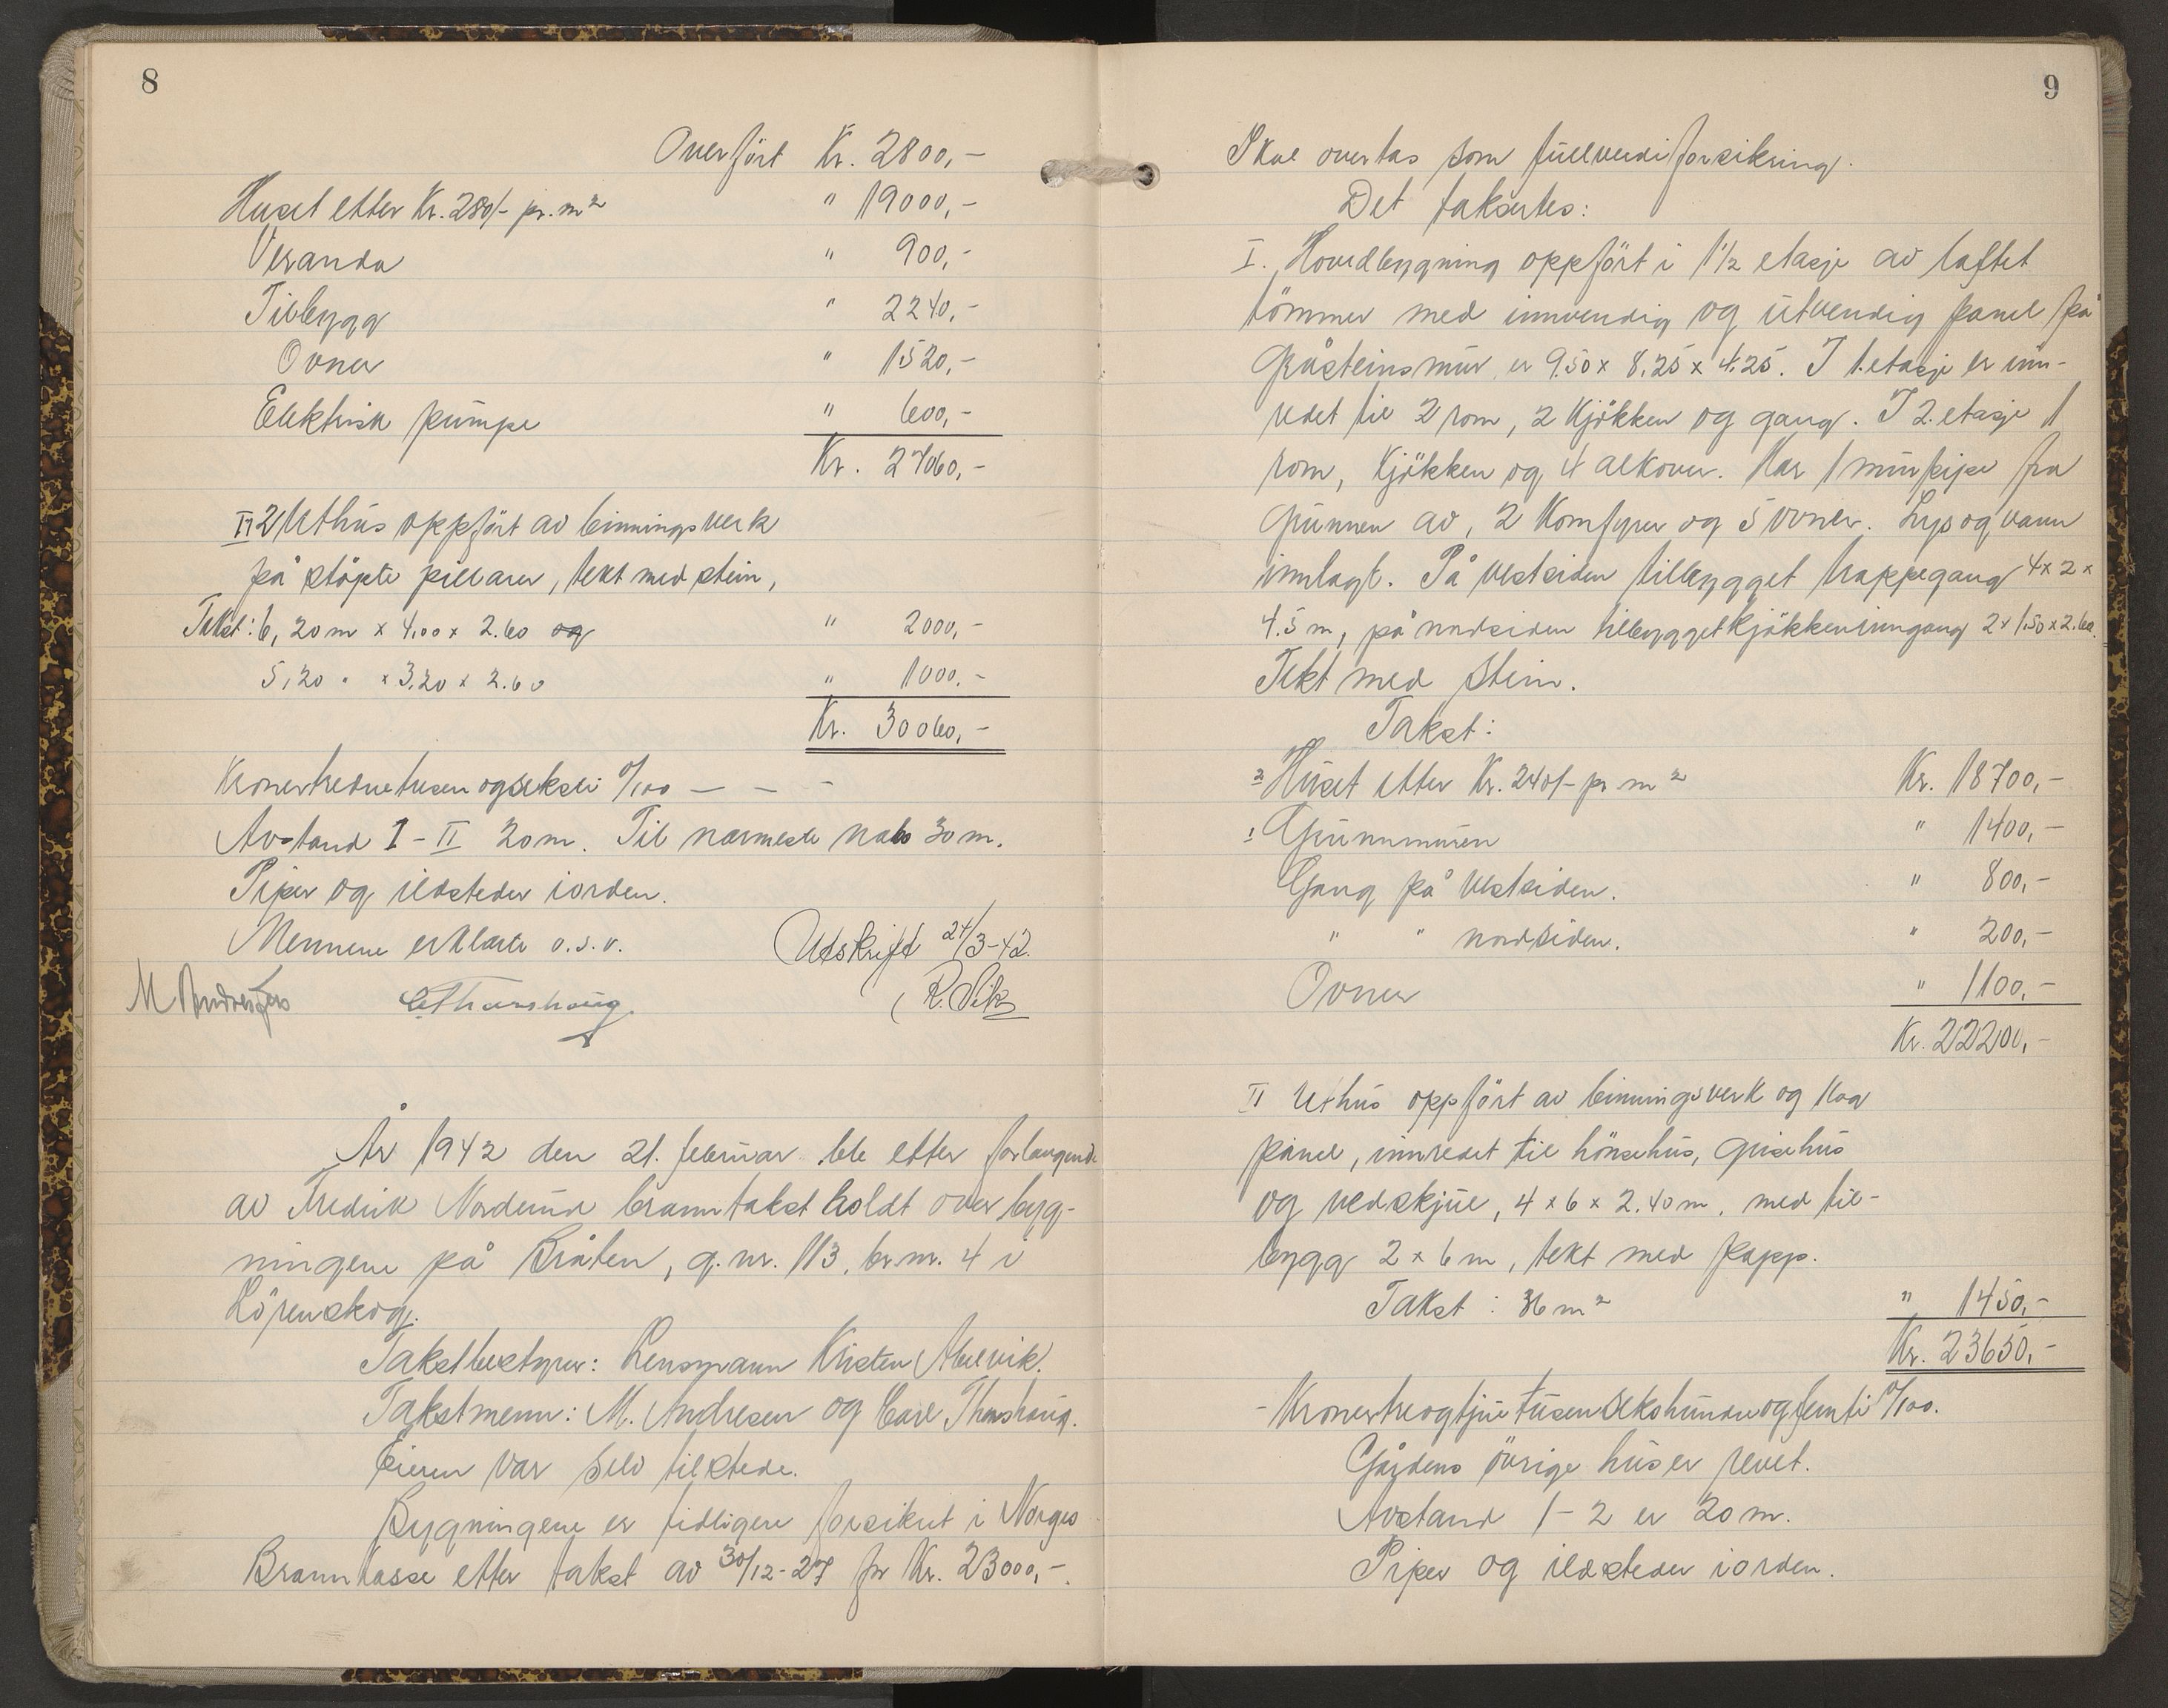 8
Overført Kr. 2800,-
Huset etter Kr. 280/- pr. m² " 19000,-
Veranda " 900,-
Tilbygg " 2240,-
Ovner " 1520,-
Elektrisk pumpe " 600,-
Kr. 27060,-
II 2 Uthus oppført av binningsverk
på støpte pillarer, tekt med stein,
Takst: 6,20 m x 4,00 x 2.60 og " 2000,-
5,20 " x 3,20 x 2.60 " 1000.-
Kr. 30060,-
Kronertredvetusenogseksti 0/100 — — -
Avstand I - II 20 m. Til nærmeste nabo 30 m.
Piper og ildsteder iorden.
Mennene erklærte o.s.v. Utskrift 24/3-42.
M Andresen C. Thurshaug R. Vik
År 1942 den 21. februar ble etter forlangende
av Fredrik Nordlund branntakst holdt over byg-
ningene på Bråten, g.nr. 113, br.nr. 4 i
Lørenskog.
Takstbestyrer: Lensmann Kristen
Takstmenn: M. Andresen og Carl Thurshaug.
Eieren var selv tilstede.
Bygningene er tidligere forsikret i Norges
Brannkasse etter takst av 30/12-27 for Kr. 23000,-.
9
Skal overtas som fullverdiforsikring.
Det takseres:
I. Hovedbygning oppført i 1 1/2 etasje av laftet
tømmer med innvendig og utvendig panel på
gråsteinsmur er 9.50 x 8,25 x 4,25. I 1. etasje er inn-
redet til 2 rom, 2 kjøkken og gang. I 2. etasje 1
rom, kjøkken og 4 alkover. Har 1 murpipe fra
grunnen av, 2 komfyrer og 5 ovner. Lys og vann
innlagt. På vestsiden tilbygget trappegang 4 x 2 x
4.5 m, på nordsiden tilbygget kjøkkeninngang 2 x 1.50 x 2.60.
Tekt med stein.
Takst:
2 Huset etter Kr. 240/- pr m² Kr. 18700,-
1 Grunnmuren " 1400,-
Gang på vestsiden. " 800,-
" " nordsiden. " 200,-
Ovner " 1100,-
Kr. 22200,-
II Uthus oppført av binningsverk og
panel, innredet til hønsehus, grisehus
og vedskjul, 4 x 6 x 2.40 m. med til-
bygg 2 x 6 m, tekt med papp.
Takst : 36 m² " 1450,-
Kr. 23650,-
- Kronertreogtjuetusensekshundreogfemti 0/100.
Gårdens øvrige hus er revet.
Avstand 1 - 2 er 20 m.
Piper og ildsteder iorden.